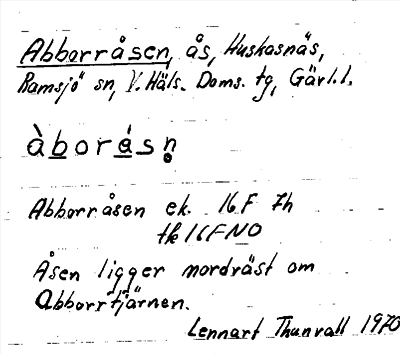 Abborråsen, ås, Huskasnäs,
Ramsjö sn, V. Häls. Doms. tg, Gävl. l.
àborásn̥
Abborråsen ek. 16F 7h
tk 16F NO
Åsen ligger nordväst om
Abborrtjärnen.
Lennart Thunvall 1970